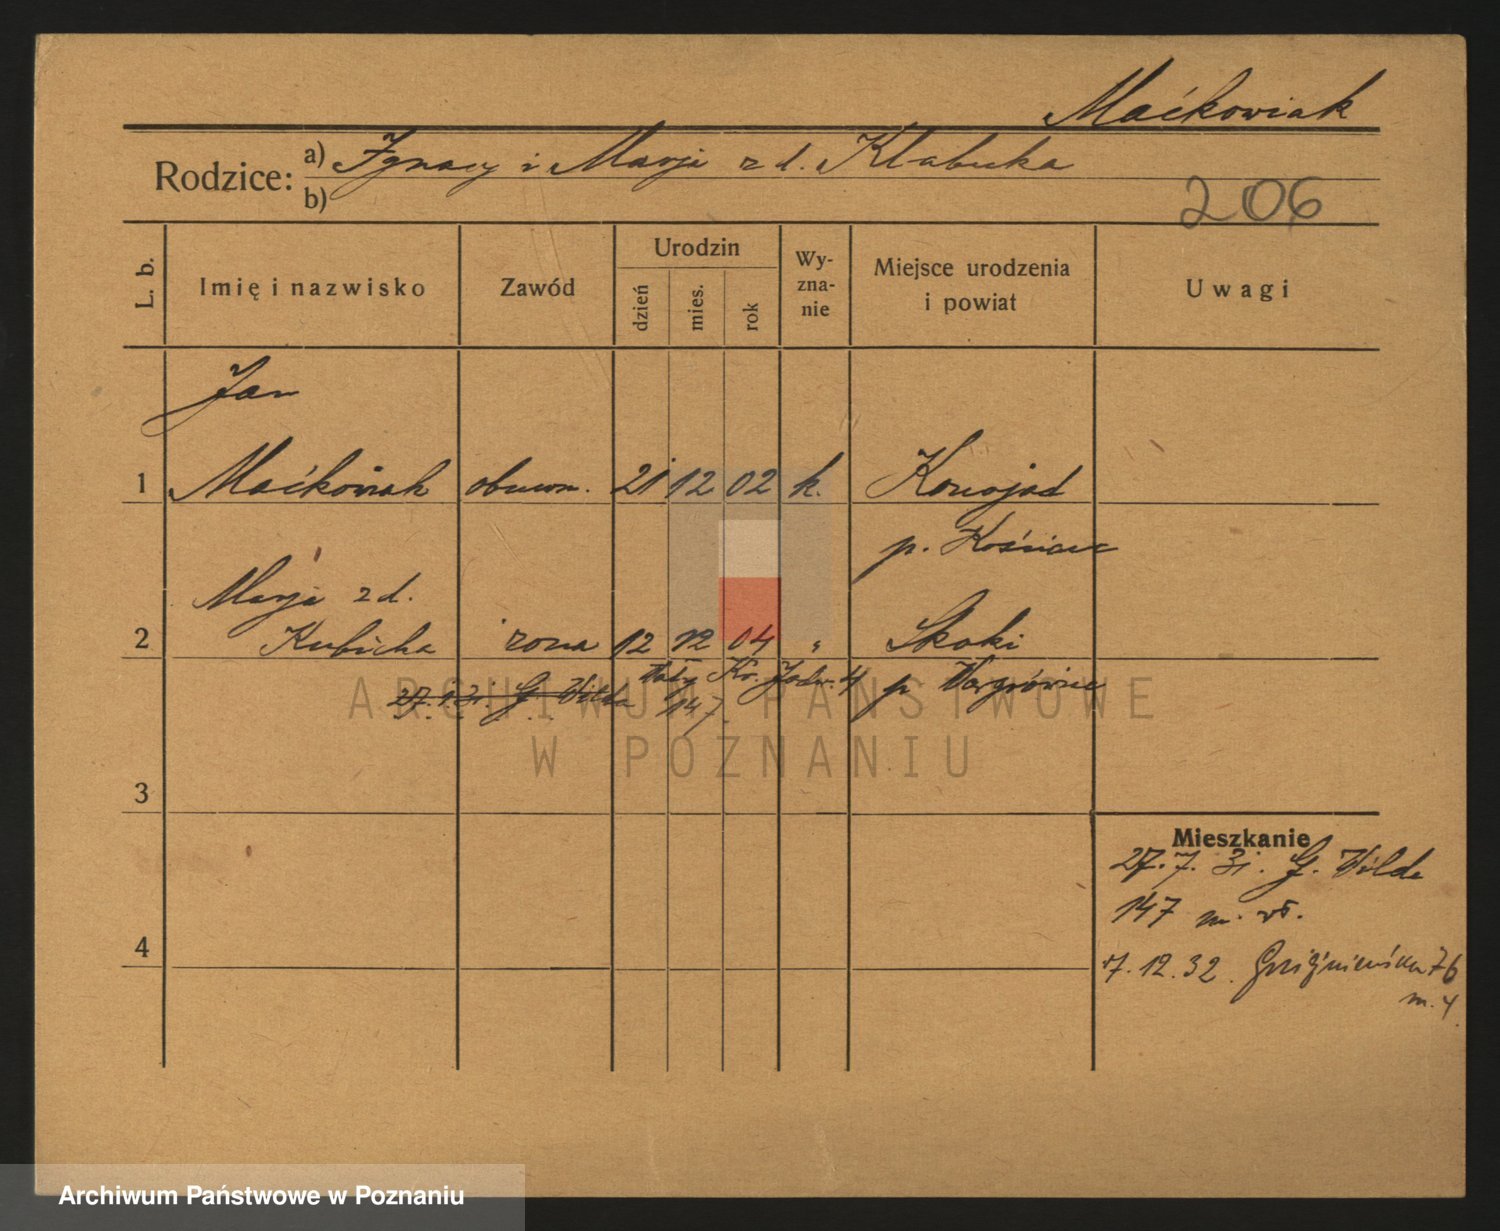 Maćkowiak
Rodzice: a) Ignacy i Marja z d. Kłabucka
b)
206
L. b. Imię i nazwisko Zawód Urodzin dzień mies. rok Wy-zna-nie Miejsce urodzenia i powiat Uwagi
Jan
1 Maćkowiak obuwn. 21 12 02 k. Konojad
p. Kościan
Marja z d.
2 Kubicka żona 12 12 04 " Skoki
p. Wągrówiec
27. 7. 31. G. Wilda
147
3
Mieszkanie
27. 7. 31. G. Wilda
147 m.
4
7. 12. 32. 76
m. 4
ARCHIWUM PAŃSTWOWE
W POZNANIU
Archiwum Państwowe w Poznaniu